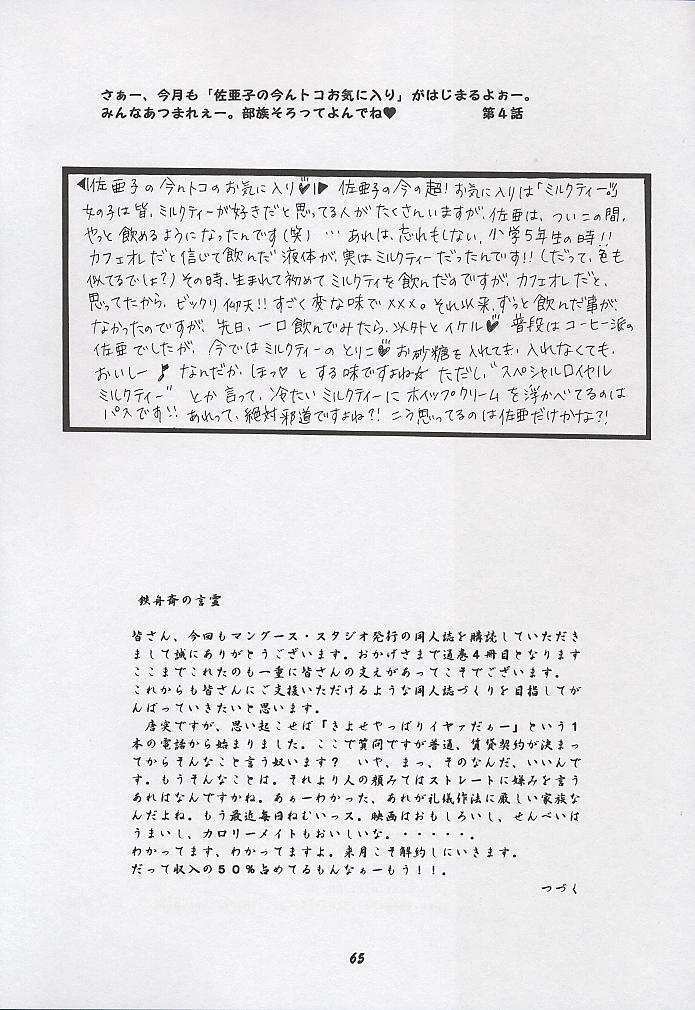 さぁー、今月も「佐亜子の今んトコお気に入り」がはじまるよぉー。
みんなあつまれぇー。部族そろってよんでね♥　第４話
◀佐亜子の今んトコのお気に入り♥▶ 佐亜子の今の超！お気に入りは「ミルクティー」。
女の子は皆、ミルクティーが好きだと思ってる人がたくさんいますが、佐亜は、ついこの間、
やっと飲めるようになったんです（笑）…あれは、忘れもしない、小学5年生の時!!
カフェオレだと信じて飲んだ液体が、実はミルクティーだったんです!!（だって、色も
似てるでしょ？）その時、生まれて初めてミルクティを飲んだのですが、カフェオレだと、
思ってたから、ビックリ仰天!!すごく変な味で×××。それ以来、ずっと飲んだ事が、
なかったのですが、先日、一口飲んでみたら、以外とイケル♥ 普段はコーヒー派の
佐亜でしたが、今ではミルクティーのとりこ♥お砂糖を入れても、入れなくても、
おいしー♪ なんだか、ほっ♡とする味ですよね☆ ただし、"スペシャルロイヤル
ミルクティー"とか言って、冷たいミルクティーにホイップクリームを浮かべてるのは
パスです!! あれって、絶対邪道ですよね?! こう思ってるのは佐亜だけかな?!
鉄舟斎の言霊
皆さん、今回もマングース・スタジオ発行の同人誌を購読していただき
まして誠にありがとうございます。おかげさまで通巻４冊目となります
ここまでこれたのも一重に皆さんの支えがあってこそでございます。
これからも皆さんにご支援いただけるような同人誌づくりを目指してが
んばっていきたいと思います。
　唐突ですが、思い起こせば「きよせやっぱりイヤァだぁー」という１
本の電話から始まりました。ここで質問ですが普通、賃貸契約が決まっ
てからそんなこと言う奴います？　いや、まっ、そのなんだ、いいんで
す。もうそんなことは。それより人の顔みてはストレートに嫌みを言う
あれはなんですかね。あぁーわかった、あれが礼儀作法に厳しい家族な
んだよね。もう最近毎日ねむいっス。映画はおもしろいし、せんべいは
うまいし、カロリーメイトもおいしいな。・・・・・。
わかってます、わかってますよ。来月こそ解約しにいきます。
だって収入の５０％占めてるもんなぁーもう！！。
つづく
65